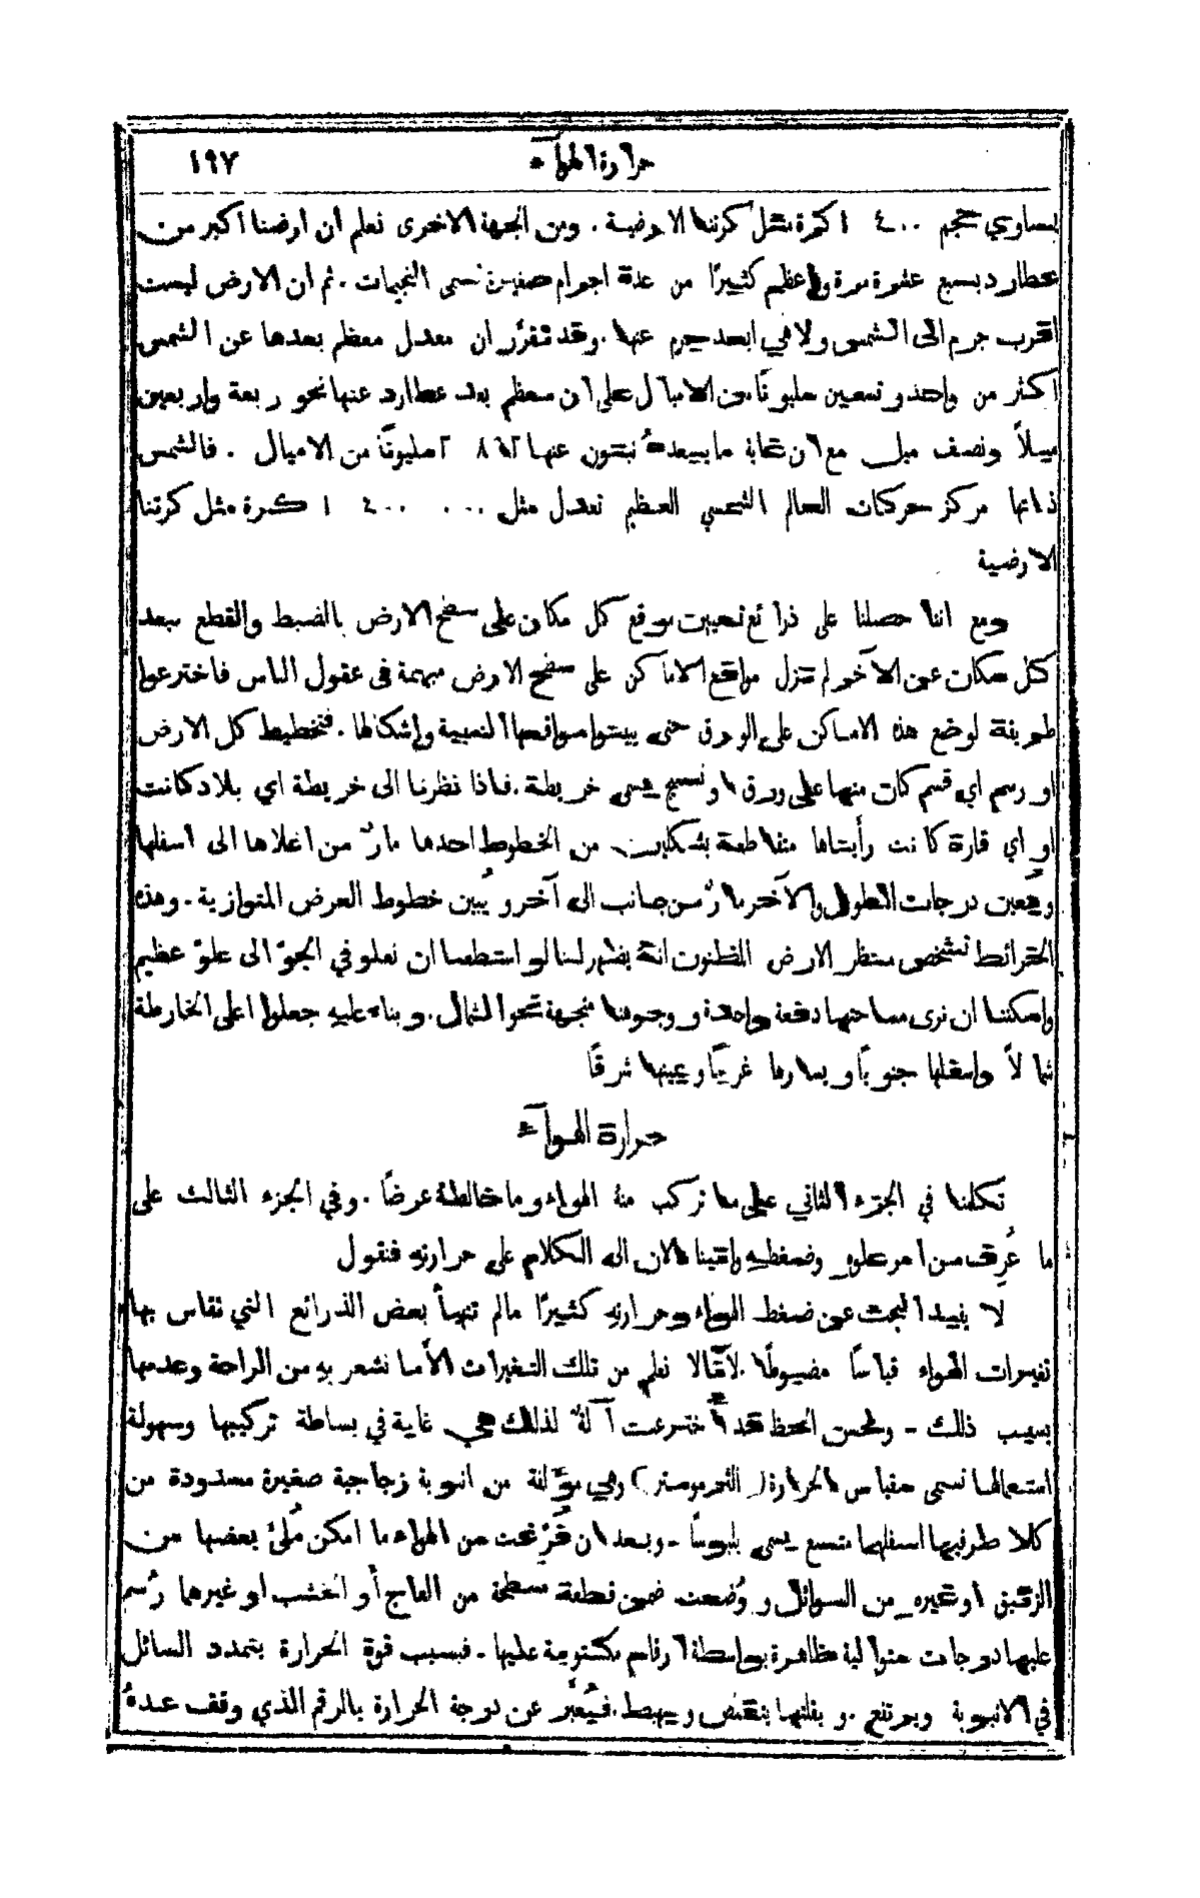 حرارة الهوآء ١٩٧
يساوي حجم ١٤٠٠ كرة مثل كرتنا الارضية . ومن الجهة الاخرى نعلم ان ارضنا اكبر من
عطارد بسبع عشرة مرة واعظم كثيرًا من عدة اجرام صغيرة تسمى النجيمات . ثم ان الارض ليست
اقرب جرم الى الشمس ولا هي ابعد جرم عنها . وقد تقرَّر ان معدل معظم بعدها عن الشمس
اكثر من واحد وتسعين مليونًا من الاميال على ان معظم بعد عطارد عنها نحو ربعة واربعين
ميلاً ونصف ميل مع ان غاية ما يبعدهُ نبتون عنها ٢٨٦٢ مليونًا من الاميال . فالشمس
ذاتها مركز حركات العالم الشمسي العظيم تعدل مثل ١٤٠٠٠٠٠ كرة مثل كرتنا
الارضية
ومع اننا حصلنا على ذرائع تعيين موقع كل مكان على سطح الارض بالضبط والقطع ببعد
كل مكان عن الآخر لم تزل مواقع الاماكن على سطح الارض مبهمة في عقول الناس فاخترعوا
طريقة لوضع هذه الاماكن على الورق حتى يبينوا مواقعها النسبية واشكالها . فتخطيط كل الارض
او رسم اي قسم كان منها على ورق او نسيج يسمى خريطة . فاذا نظرنا الى خريطة اي بلاد كانت
او اي قارة كانت رأيناها متقاطعة بشكلين من الخطوط احدها مارٌّ من اعلاها الى اسفلها
ويُعين درجات الطول والآخر مارٌّ من جانب الى آخر ويُبين خطوط العرض المتوازية . وهذه
الخرائط تشخص منظر الارض المظنون انهُ يظهر لنا لو استطعنا ان نعلو في الجوّ الى علوّ عظيم
وامكننا ان نرى مساحتها دفعة واحدة ووجوهنا متجهة نحو الشمال . وبناءً عليهِ جعلوا اعلى الخارطة
شمالاً واسفلها جنوبًا ويسارها غربًا ويمينها شرقًا
حرارة الهوآء
تكلمنا في الجزء الثاني على ما تركب منهُ الهواء وما خالطهُ عرضًا . وفي الجزء الثالث على
ما عُرِف من امر علوهِ وضغطهِ واتينا الان الى الكلام على حرارتهِ فنقول
لا يفيد البحث عن ضغط الهواء وحرارتهِ كثيرًا ما لم تتهيأ بعض الذرائع التي تقاس بها
تغيرات الهواء قياسًا مضبوطًا . لاننا لا نعلم من تلك التغيرات الاَّ ما نشعر بهِ من الراحة وعدمها
بسبب ذلك - ولحسن الحظ قد اُخترعت آلةٌ لذلك هي غاية في بساطة تركيبها وسهولة
استعمالها تسمى مقياس الحرارة ( الثرمومتر ) وهي مؤلفة من انبوبة زجاجية صغيرة مسدودة من
كلا طرفيها اسفلهما متسع يسمى بلبوسًا - وبعد ان فُرِّغت من الهواء ما امكن مُلِئ بعضها من
الزئبق او غيرهِ من السوائل ووُضعت ضمن قطعة مسطحة من العاج أو الخشب او غيرهما رُسم
عليها درجات متوالية مظاهرة بواسطة ارقام مكتوبة عليها . فبسبب قوة الحرارة يتمدد السائل
في الانبوبة ويرتفع . وبقلتها ينقبض ويهبط . فيُعبَّر عن درجة الحرارة بالرقم الذي وقف عندهُ